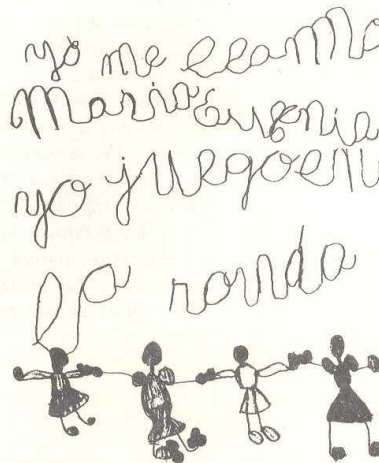 yo me llamo
Maria Eugenia
yo juego en
la ronda